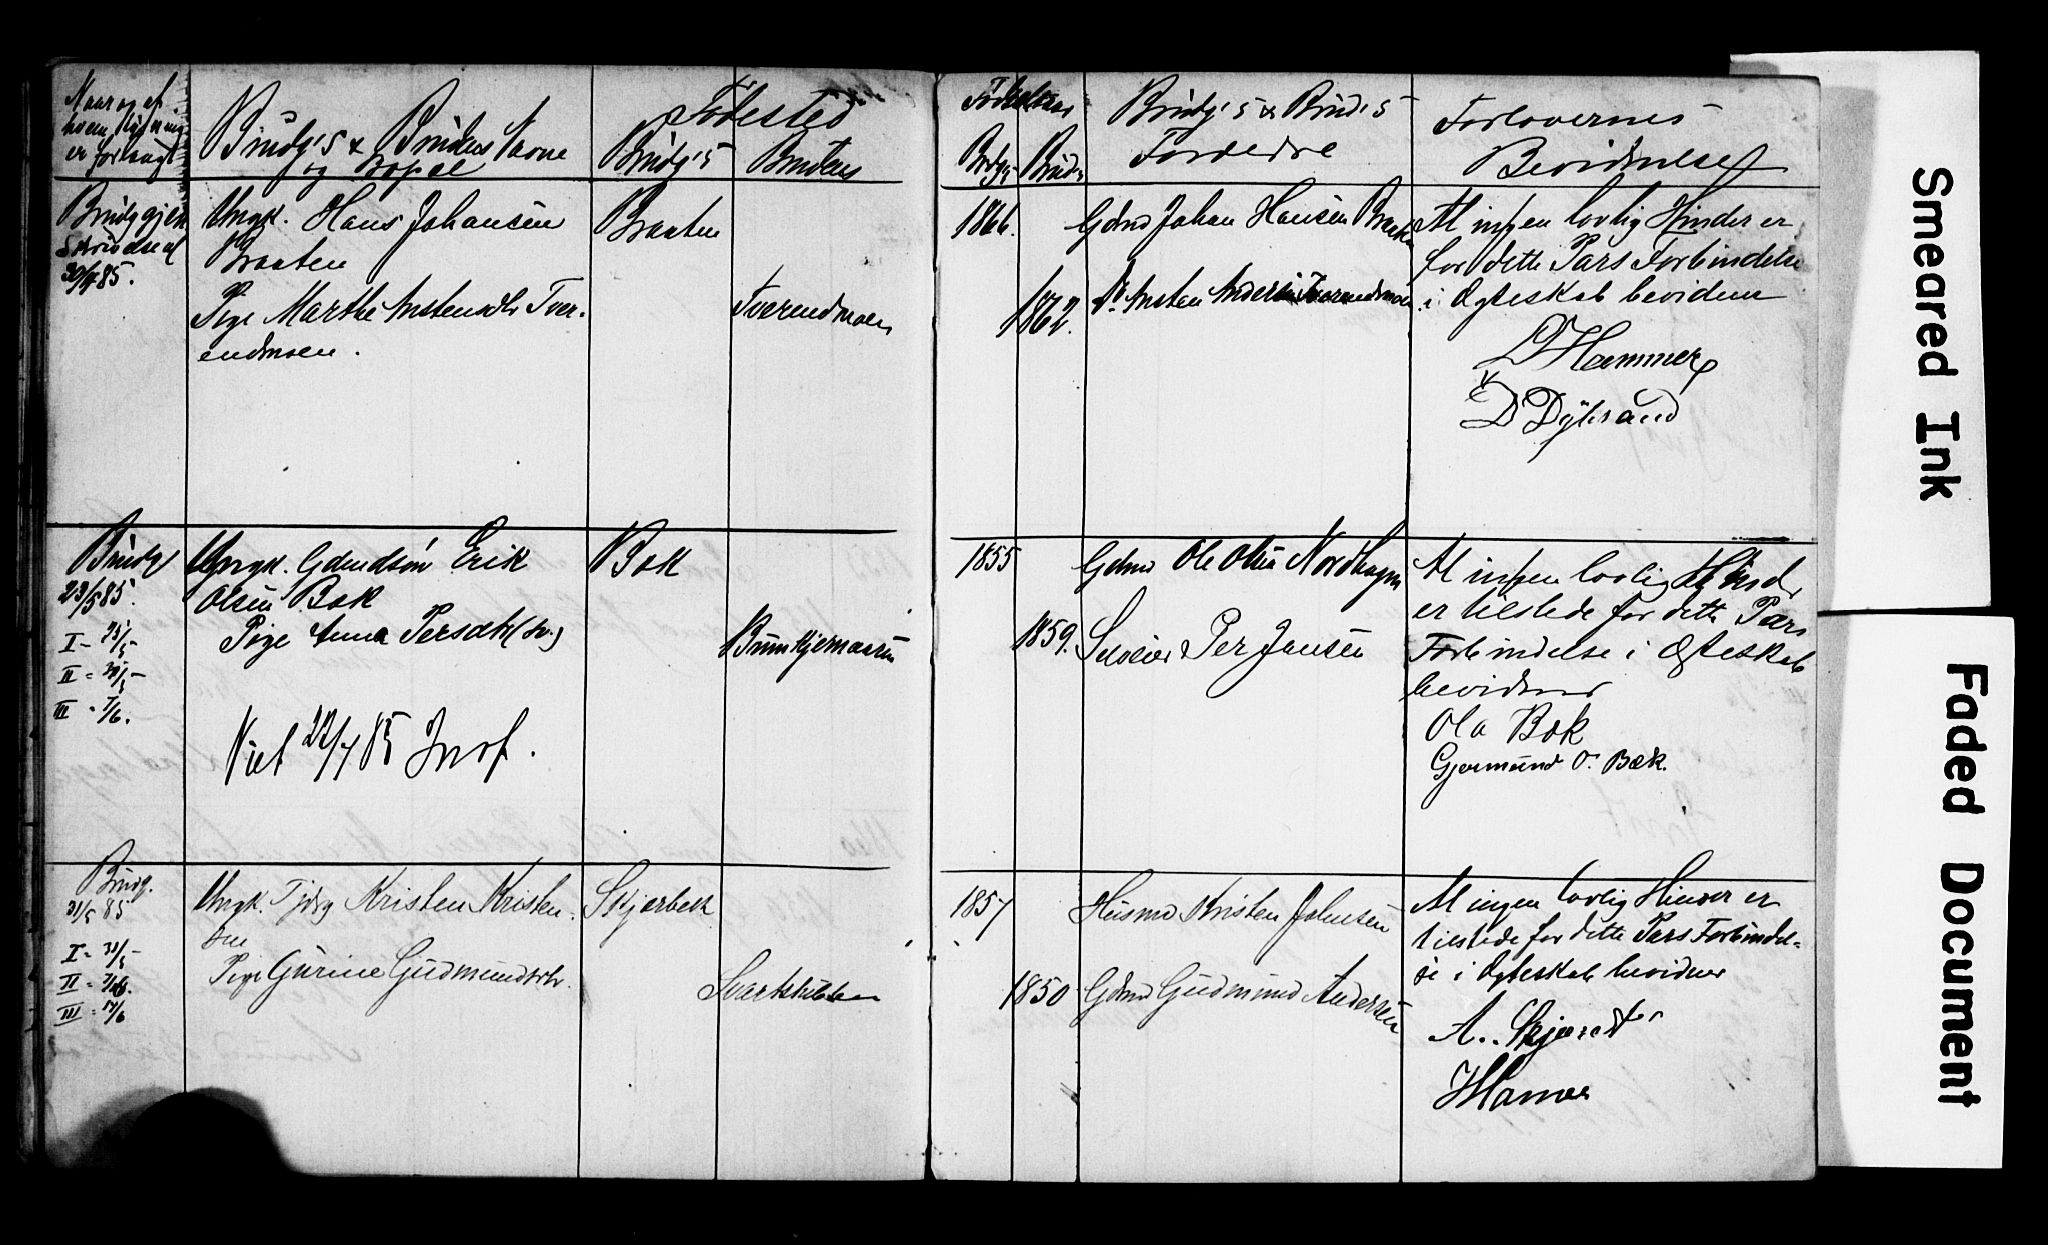 Naar og af
hvem Lysning
er forlangt
Brudg's & Brudens Navne
og Bopæl
Fødested
Brudg's
Brudens
Fødselsaar
Brdgs Bruds
Brudg's & Brud's
Forældre
Forlovernes
Bevidnelse
Brudgj
30/4 85.
Ungk. Hans Johansen
Braaten
Pige Marthe Anstensdtr Tver-
endmoen.
Braaten
Tverendmoen
1866.
1862.
Gdmd Johan Hansen Braaten
Do. Ansten Andersen Tverendmoen
At ingen lovlig Hinder er
for dette Pars Forbindelse
i Ægteskab bevidner
D Hammer
D Dybsand
Brudg
23/5 85.
I - 25/5 -
II - 30/5 -
III - 7/6.
Ungk. Gdmdsøn Erik
Olsen Bæk
Pige Anna Persdtr
Viet 22/7 85
Bæk
1855
1859.
Gdmd Ole Olsen Nordhagen
Selveier Per Jansen
At ingen lovlig Hinder
er tilstede for dette Pars
Forbindelse i Ægteskab
bevidner
Ola Bæk
Gjermund O. Bæk.
Brudg.
31/5 85
I - 31/5 -
II - 7/6.
III - 14/6
Ungk. Kristen Kristen-
sen
Pige Gurine Gudmundsdtr.
Skjerbek
1857
1850
Husmd Kristen Johnsen
Gdmd Gudmund Andersen
At ingen lovlig Hinder er
tilstede for dette Pars Forbindel-
se i Ægteskab bevidner
Smeared Ink
Faded Document